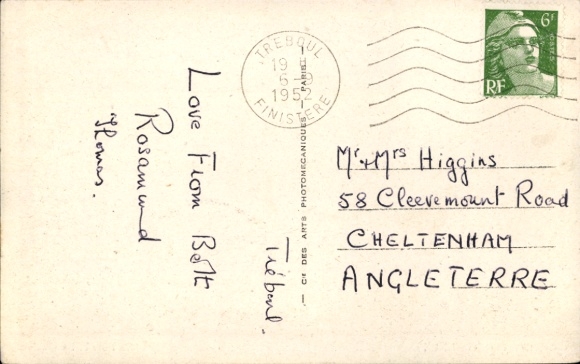 Tréboul.
Love From Both
Rosamund
Thomas.
Cie DES ARTS PHOTOMECANIQUES — PARIS —
TREBOUL
19
6-9
1952
FINISTERE
6F
RF
Mr + Mrs Higgins
58 Cleevemount Road
CHELTENHAM
ANGLETERRE